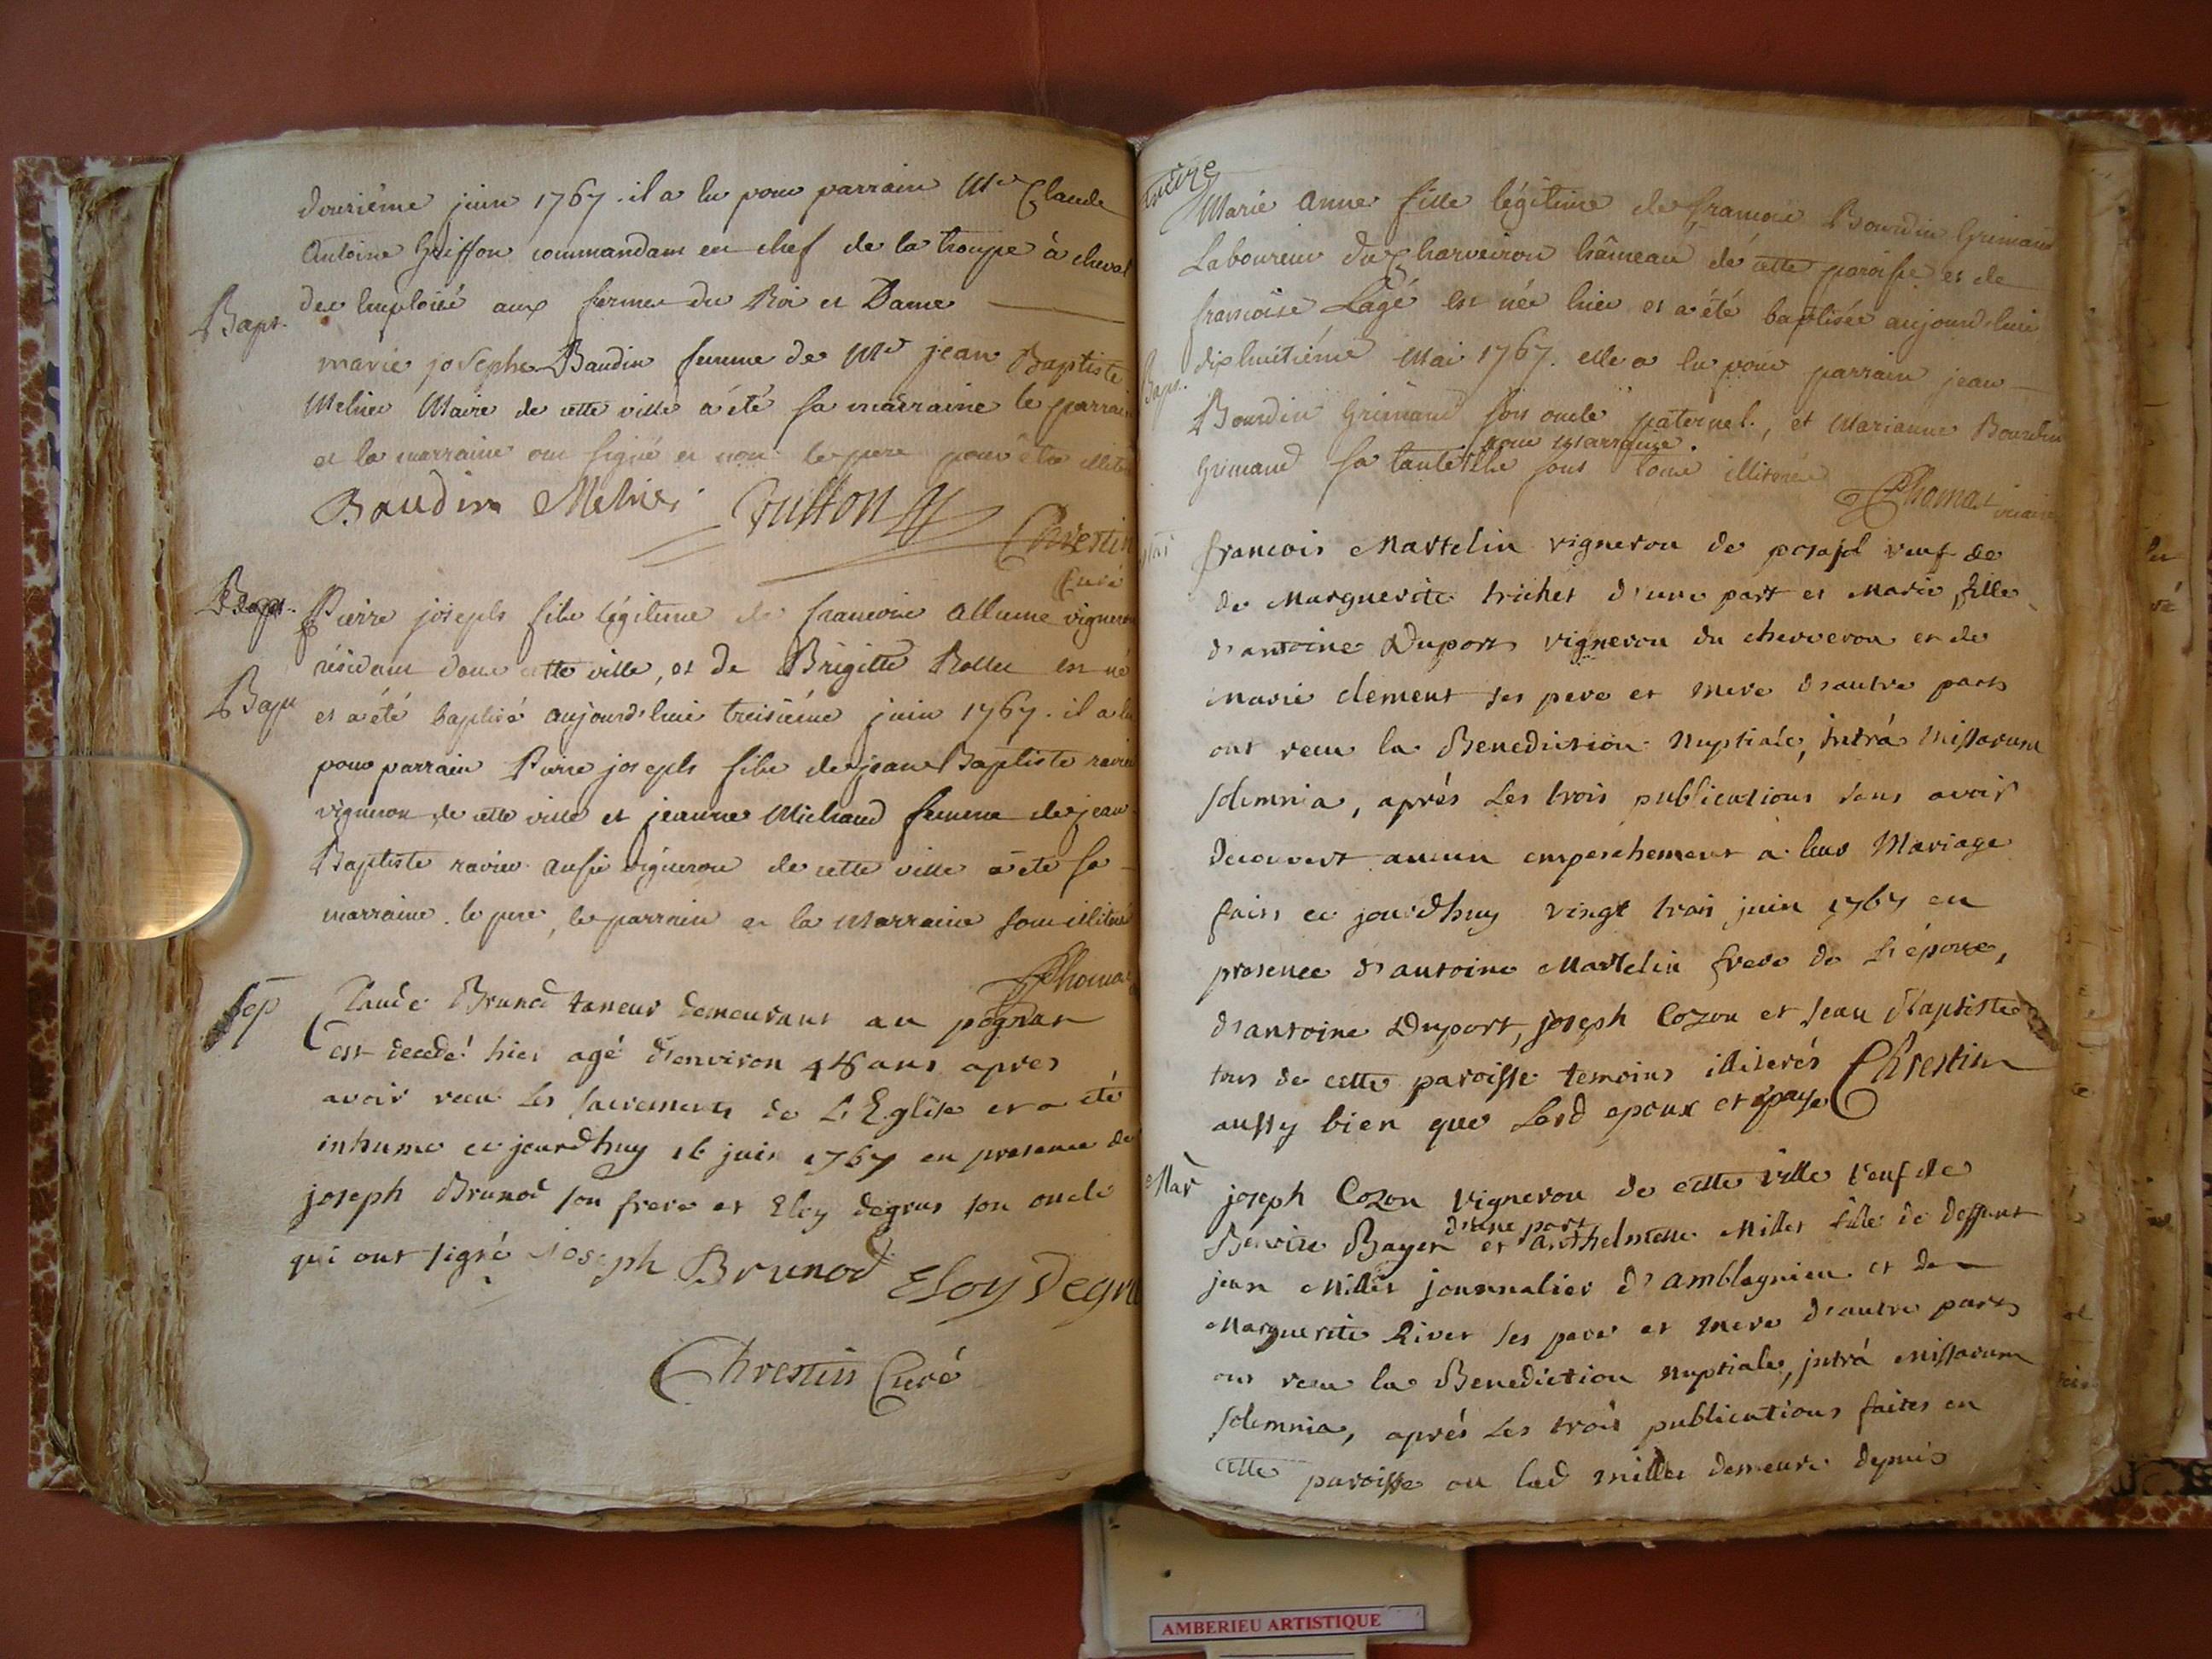 douziéme juin 1767. il a eu pour parrain Mr Claude
Antoine Griffon commandant en chef de la troupe à cheval
des emploiés aux fermes du Roi et Dame
Bapt.
marie josephe Baudin femme de Mr jean Baptiste
Melier Maire de cette ville a été sa marraine le parrain
et la marraine ont signé et non le pere pour être illiteré
Baudin Melier
Chrestin
Curé
Bapt.
Pierre joseph fils légitime de francois Allume vigneron
résidant dans cette ville, et de Brigitte Rollet est né
Bapt
et a été baptisé aujourd'hui treisiéme juin 1767. il a eu
pour parrain Pierre joseph fils de jean Baptiste ravier
vigneron de cette ville et jeanne Michaud femme de jean
Baptiste ravier aussi vigneron de cette ville a été sa
marraine. le pere, le parrain et la Marraine sont illiterés
Thomas
Sep
Claude Brunod taneur demeurant au
est decedé hier agé d'environ 48 ans apres
avoir recu les sacrements de L'Eglise et a été
inhumé ce jourdhuy 16 juin 1767 en presence de
joseph Brunod son frere et Eloy degrus son oncle
qui ont signé joseph Brunod Eloy Degru
Chrestin Curé
Marie Anne fille légitime de francois Bourdin Grimaud
Laboureur du Charveiron hâmeau de cette paroisse et de
francoise Lagé est née hier et a été baptisée aujourd'hui
Bapt.
dixhuitiéme Mai 1767. elle a eu pour parrain jean
Bourdin Grimaud son oncle paternel, et Marianne Bourdin
pour Marraine.
Grimaud sa tante ils sont tous illiterés
Thomas vicaire
francois Martelin vigneron de veuf de
de Marguerite trichet d'une part et Marie fille
d'antoine Duport vigneron du cherveron et de
Marie clement ses pere et mere d'autre part
ont recu la Benediction Nuptiale, intrá missarum
solemnia, aprés Les trois publications sans avoir
decouvert aucun empeschement a leur Mariage
faits ce jourdhuy vingt trois juin 1767 en
presence d'antoine Martelin frere de L'époux,
d'antoine Duport, joseph Cozon et jean Baptiste
tous de cette paroisse temoins illiterés Chrestin
aussy bien que Lesd epoux et
Mar
joseph Cozon vigneron de cette ville veuf de
d'une part
Benoite Bayer et anthelmette Millet fille de deffunt
jean Millet journalier d'amblagnieu et de
Marguerite River ses pere et mere d'autre part
ont recu la Benediction nuptiale, intrá missarum
solemnia, aprés Les trois publications faites en
cette paroisse ou lad millet demeure depuis
AMBERIEU ARTISTIQUE